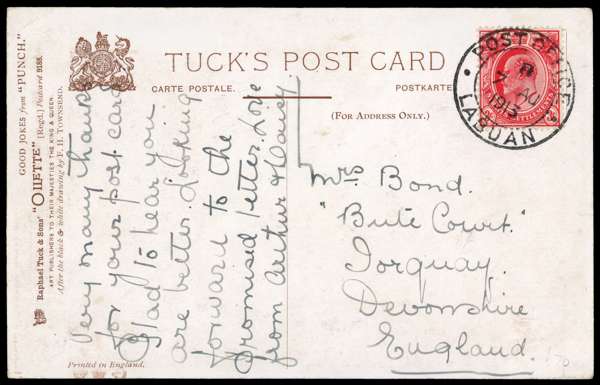 GOOD JOKES from "PUNCH."
Raphael Tuck & Sons' "OILETTE" [Regd.] Postcard 9188.
ART PUBLISHERS TO THEIR MAJESTIES THE KING & QUEEN.
After the black & white drawing by F. H. TOWNSEND.
TUCK'S POST CARD
CARTE POSTALE. POSTKARTE
(FOR ADDRESS ONLY.)
POST OFFICE
7 AU
1913
LABUAN
Very many thanks
for your post card
Glad to hear you
are better. Looking
forward to the
promised letter. Love
from Arthur & Daisy.
Mrs Bond.
"Bute Court."
Torquay.
Devonshire
England.
Printed in England.